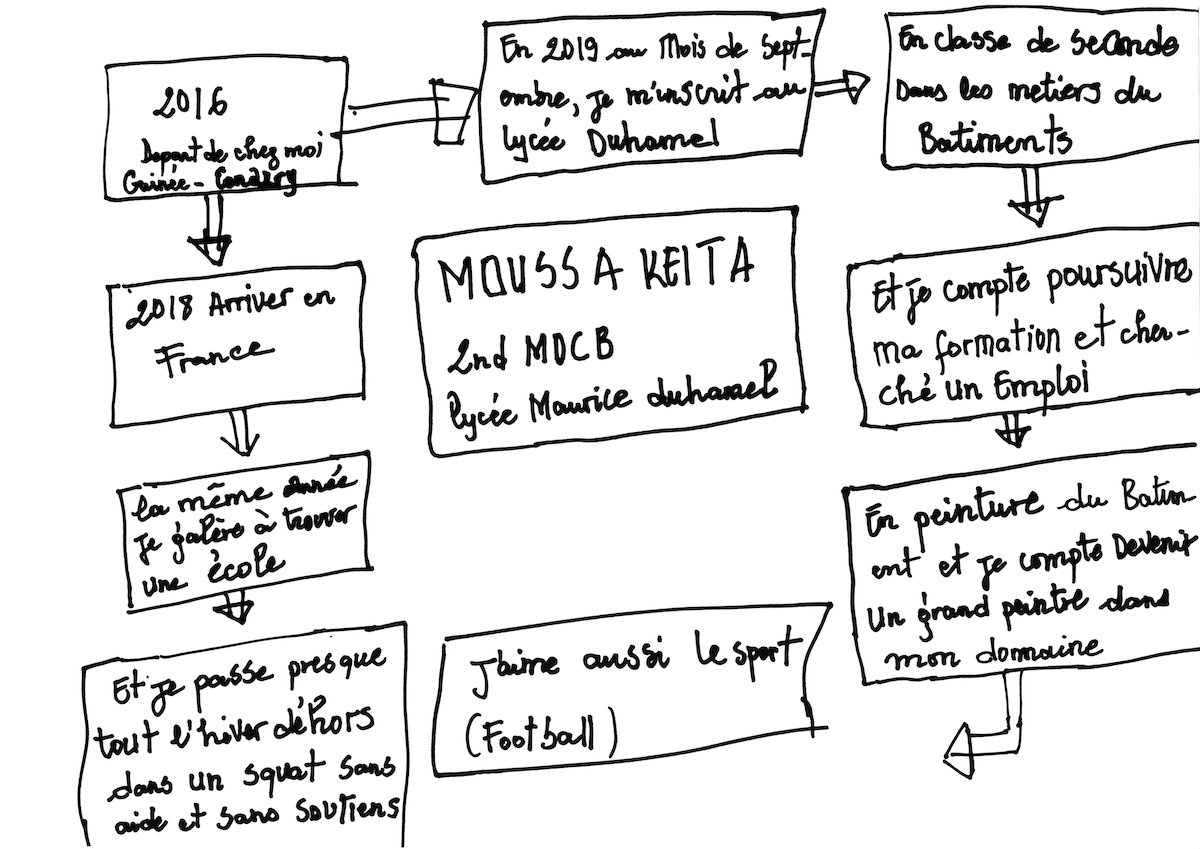 2016
Depart de chez moi
Guinée - Conakry
2018 Arriver en
France
la même année
je galère à trouver
une école
Et je passe presque
tout l'hiver déhors
dans un squat sans
aide et sans soutiens
En 2019 au Mois de Sept-
embre, je m'inscrit au
lycée Duhamel
En classe de seconde
Dans les metiers du
Batiments
Et je compte poursuivre
ma formation et cher-
ché un Emploi
En peinture du Batim
ent et je compte Devenir
un grand peintre dans
mon domaine
MOUSSA KEITA
2nd MDCB
lycée Maurice duhamel
J'aime aussi le sport
(Football)